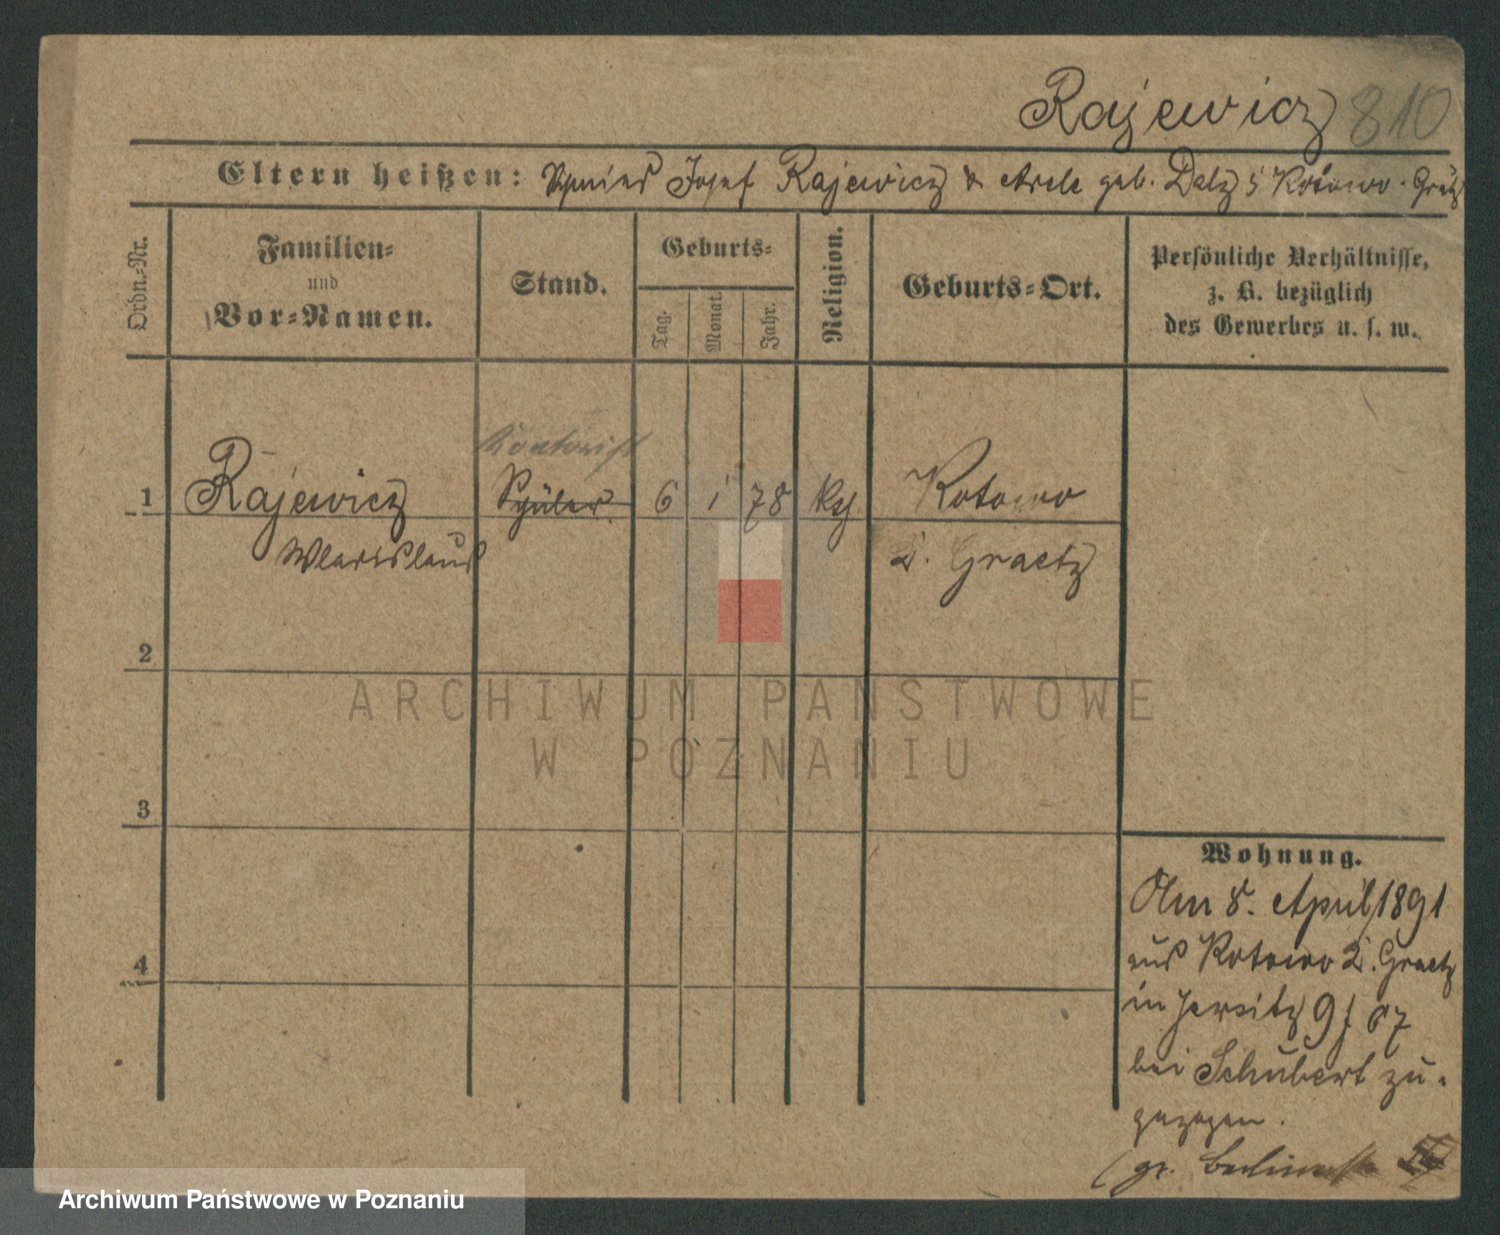 Rajewicz 810
Eltern heißen: Josef Rajewicz & geb. Kotowo - Grätz
Ordn.-Nr.
Familien-
und
Vor-Namen.
Stand.
Geburts-
Tag.
Monat.
Jahr.
Religion.
Geburts-Ort.
Persönliche Verhältnisse,
z. B. bezüglich
des Gewerbes u. s. w.
Kontorist
1 Rajewicz Schüler 6 1 78 kth Kotowo
Wladislaus
Graetz
2
ARCHIWUM PAŃSTWOWE
W POZNANIU
3
4
Wohnung.
Am 8. April 1891
aus Kotowo Graetz
in Jersitz 67
bei Schubert zu-
gezogen.
(gr. Berlinerstr.
Archiwum Państwowe w Poznaniu